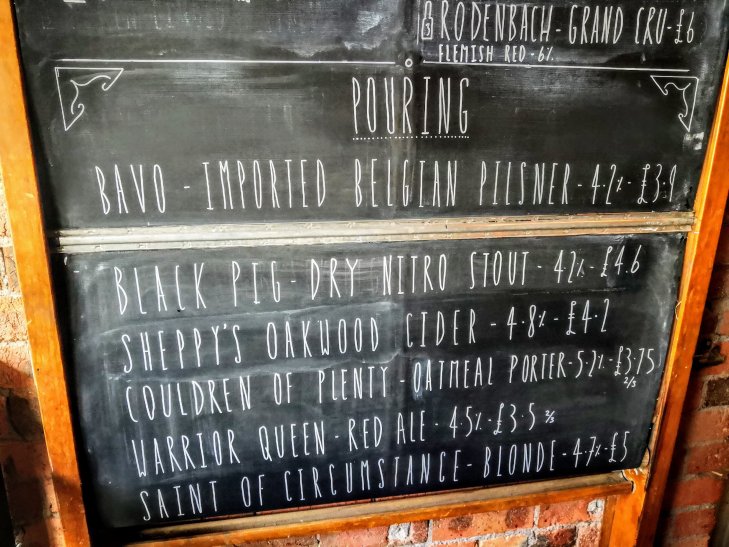 RODENBACH - GRAND CRU - £6
FLEMISH RED - 6%
POURING
BAVO - IMPORTED BELGIAN PILSNER - 4.2% - £3.9
BLACK PIG - DRY NITRO STOUT - 4.2% - £4.6
SHEPPY'S OAKWOOD CIDER - 4.8% - £4.2
COULDREN OF PLENTY - OATMEAL PORTER - 5.2% - £3.75 2/3
WARRIOR QUEEN - RED ALE - 4.5% - £3.5 2/3
SAINT OF CIRCUMSTANCE - BLONDE - 4.7% - £5